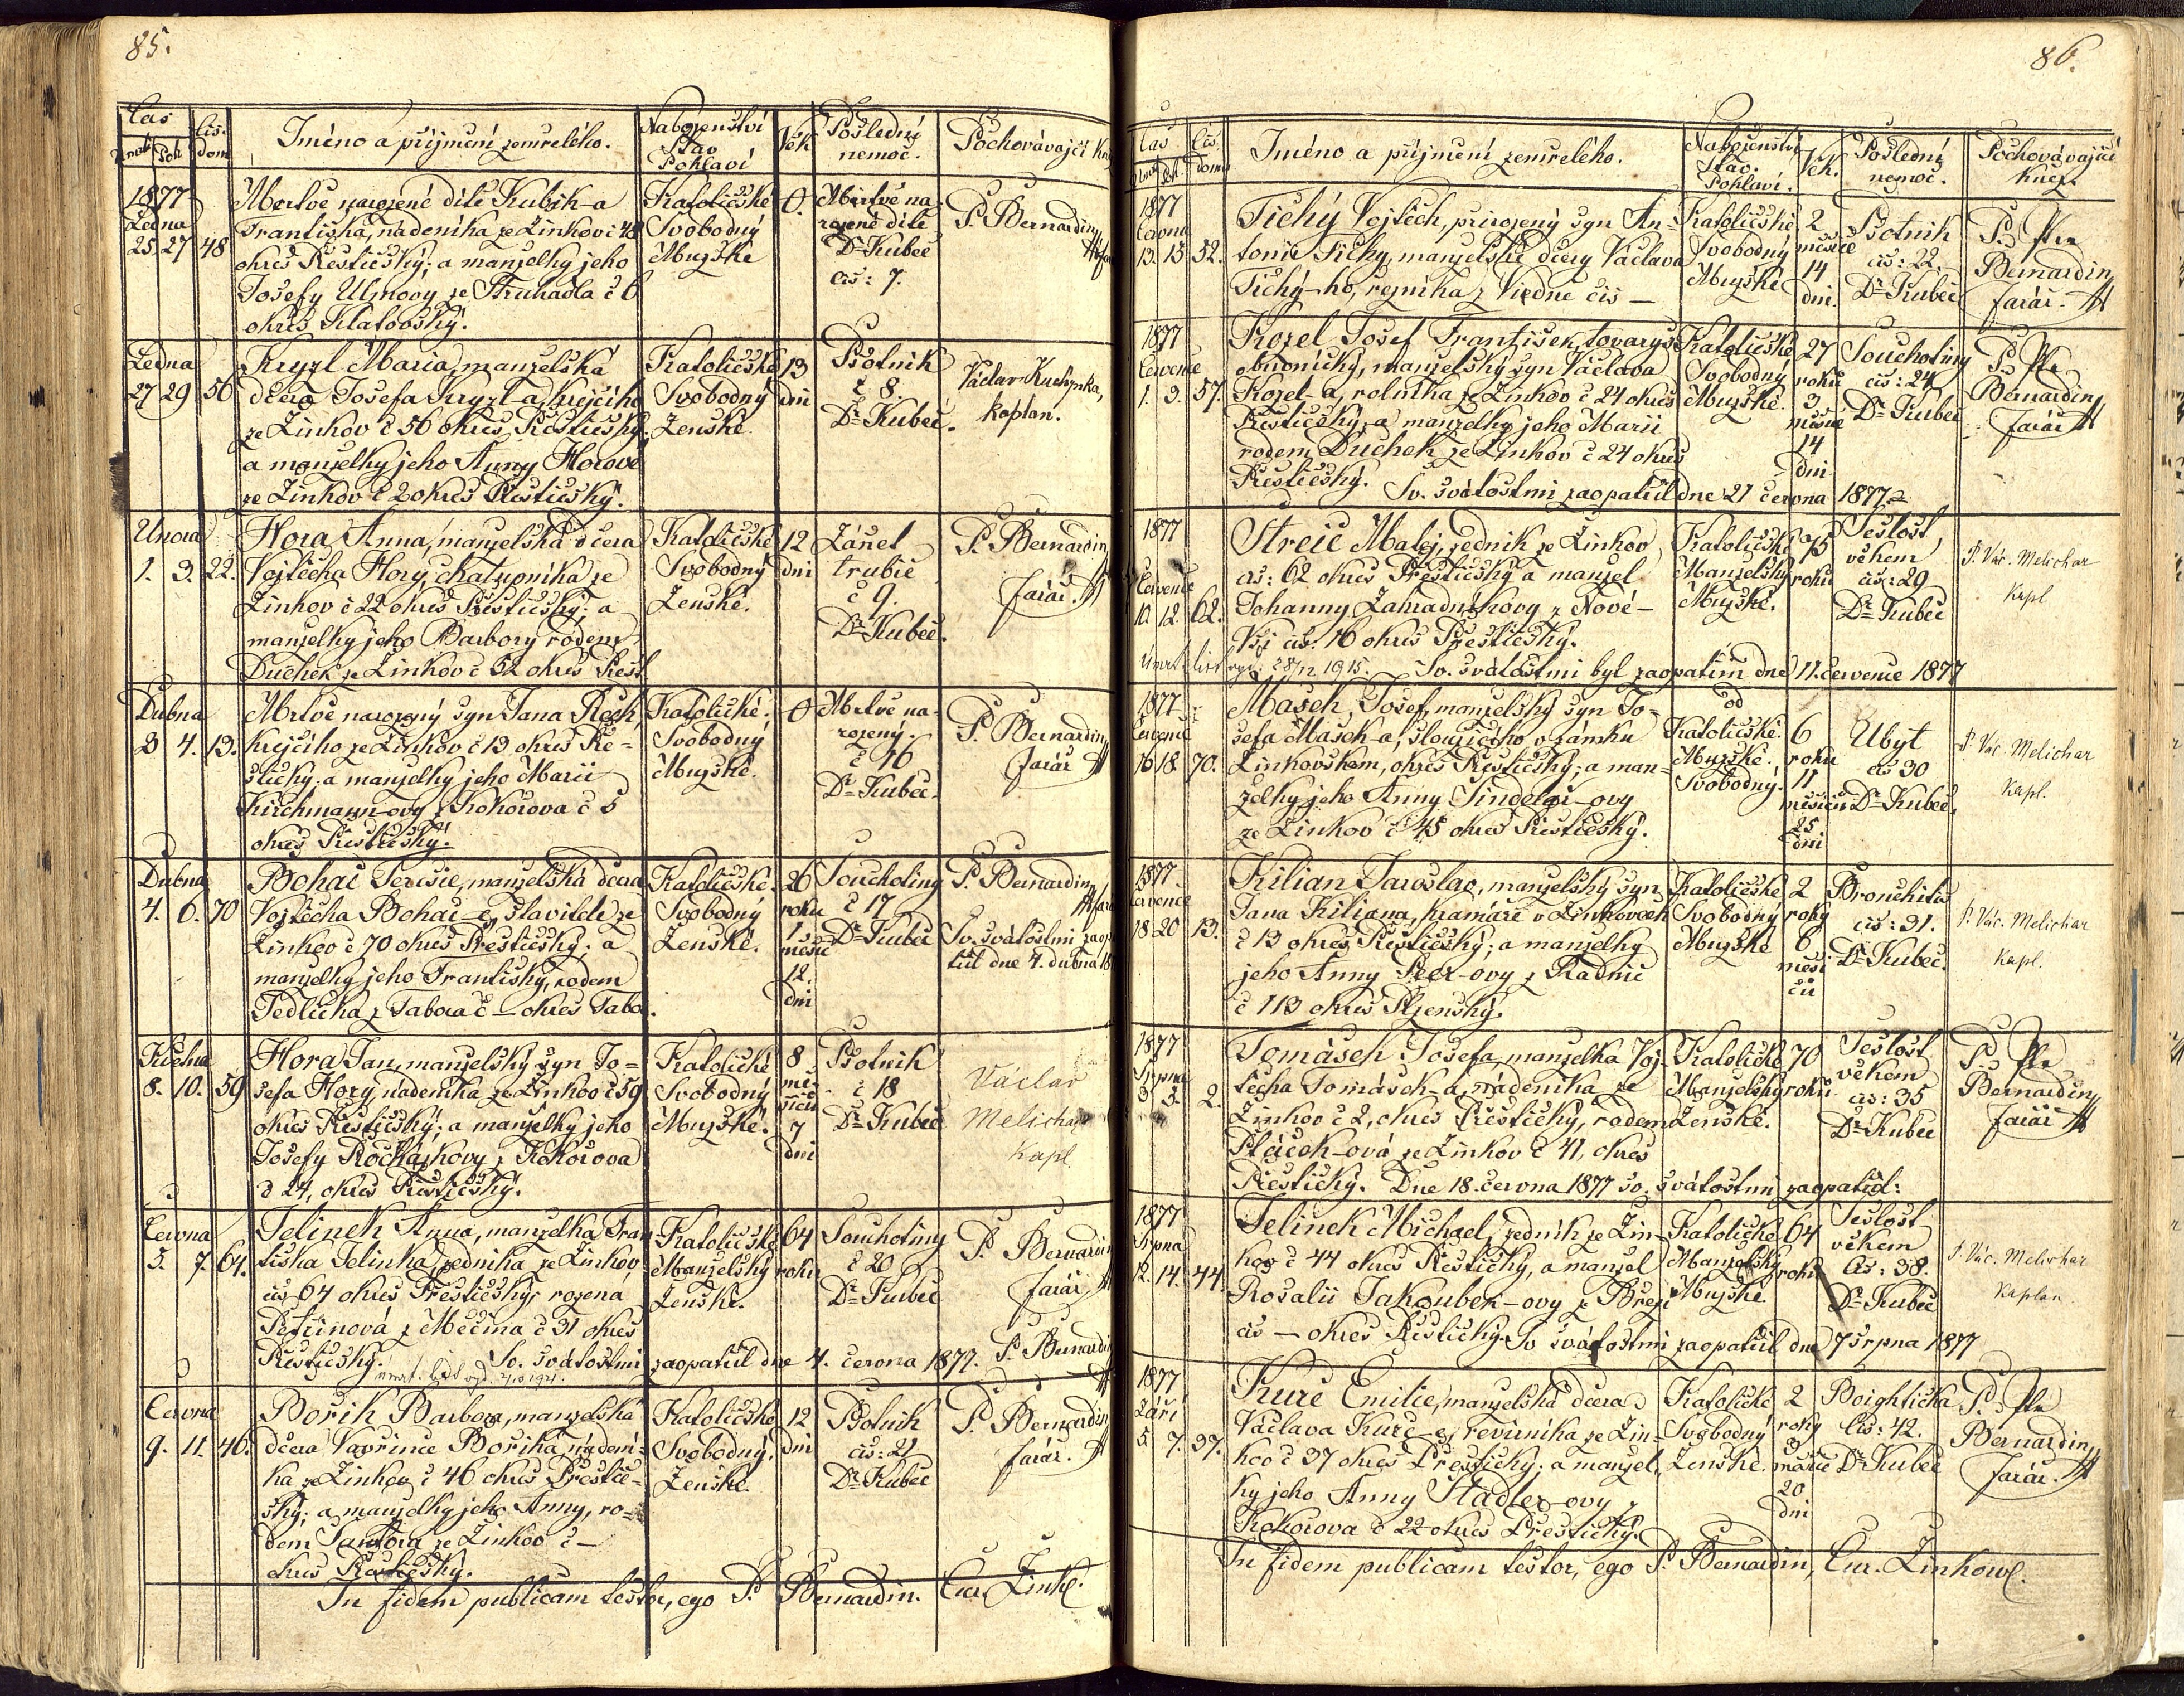 85.
Čas
Čís. dom
Jméno a příjmení zemřelého.
Náboženství Stav Pohlaví
Věk
Poslední nemoc.
Pochovávající
1877
Ledna
25 27 48
Mrtvě narozené dítě Kubík-a
Františka, nádeníka ze Žinkov č 48
okres Přestický; a manželky jeho
Josefy Ulmovy ze Struhadla č 6
okres Klatovský.
Katolické
Svobodný
Mužské
0.
Mrtvě na
rozené dítě
Dr Kubec
čís: 7.
P. Bernardin
Ledna
27 29 56
Kryzl Maria, manželská
dcera Josefa Kryzl-a, krejčího
ze Žinkov č 56 okres Přestický
a manželky jeho Anny Horové
ze Žinkov č 2 okres Přestický.
Katolické
Svobodný
Ženské.
13
dní
Psotník
č 8.
Dr Kubec.
Václav Kuchynka,
kaplan.
Února
1. 3. 22.
Hora Anna, manželská dcera
Vojtěcha Hory, chalupníka ze
Žinkov č 22 okres Přestický; a
manželky jeho Barbory rodem
Duchek ze Žinkov č 52 okres Přest
Katolické
Svobodný
Ženské.
12
dní
Zánět
trubic
č 9.
Dr Kubec.
P. Bernardin
farář.
Dubna
3 4. 13.
Mrtvě narozený syn Jana Rech,
krejčího ze Žinkov č 13 okres Pře=
stický; a manželky jeho Marii
Kirchmann-ovy z Kokořova č 5
okres Přestický.
Katolické.
Svobodný
Mužské.
0
Mrtvě na-
rozený.
č 16
Dr Kubec.
P. Bernardin
farář
Dubna
4. 6. 70
Bohac Terezie, manželská dcera
Vojtěcha Bohac-e, stavitele ze
Žinkov č 70 okres Přestický; a
manželky jeho Františky, rodem
Jedlička z Tábora č — okres Tábo.
Katolické.
Svobodný
Ženské.
26
roku
1
měsíc
12.
dní
Souchotiny
č 17
Dr Kubec
P. Bernardin
Sv. svátostmi zaop
til dne 4. dubna 18
Května
8. 10. 59
Hora Jan, manželský syn Jo=
sefa Hory, nádeníka ze Žinkov č 59
okres Přestický; a manželky jeho
Josefy Rochaskovy z Kokořova
č 24, okres Přestický.
Katolické
Svobodný
Mužské.
8
mě-
síců
7
dní
Psotník
č 18
Dr Kubec
Václav
Melichar
Kapl.
Června
5. 7. 64.
Jelinek Anna, manželka Fran
tiška Jelinka, zedníka ze Žinkov
čís 64 okres Přestický, rozená
Petřinová z Měčína č 31 okres
Přestický.
Sv. svátostmi zaopatřil dne 4. června 1877. P. Bernardin
Katolické
Manželský
Ženské.
64
roku
Souchotiny
č 20
Dr Kubec
P. Bernardin
farář
úmrt. list vyd. 7/10 1921.
Června
9. 11. 46.
Bořik Barbora, manželská
dcera Vavřince Bořika, nádení-
ka ze Žinkov č 46 okres Přestic-
ký; a manželky jeho Anny, ro-
dem Šantora ze Žinkov č —
okres Přestický.
Katolické
Svobodný.
Ženské.
12
dní
Psotník
čís: 21
Dr Kubec
P. Bernardin
farář.
In fidem publicam testor, ego P. Bernardin. Cur. Žink.
86.
Čas
Čís. domu
Jméno a příjmení zemřelého.
Náboženství Stav. Pohlaví.
Věk.
Poslední nemoc.
Pochovávající kněz.
1877
Června
13. 15 52.
Tichý Vojtěch, přirozený syn An-
tonie Tichy, manželské dcery Václava
Tichý-ho, řezníka z Vídně čís —
Katolické
Svobodný
Mužské
2
měsíce
14
dní.
Psotník
čís: 22.
Dr Kubec
P. Pr
Bernardin
farář.
1877
Července
1. 3. 57.
Kozel Josef František, tovaryš
obuvnický, manželský syn Václava
Kozel-a, rolníka ze Žinkov č 24 okres
Přestický; a manželky jeho Marii
rodem Duchek ze Žinkov č 24 okres
Přestický. Sv. svátostmi zaopatřil dne 27 června 1877.
Katolické
Svobodný
Mužské.
27
roků
3
měsíce
14
dní
Souchotiny
čís: 24
Dr Kubec
P. Pr
Bernardin
farář
1877
Července
10. 12. 62.
Streic Matěj, zedník ze Žinkov
čís: 62 okres Přestický a manžel
Johanny Zahradníkovy z Nové-
Vsi čís: 16 okres Přestický.
Úmrt list vyd. 28/12 1915. Sv. svátostmi byl zaopatřím dne 11. července 1877
Katolické
Manželský
Mužské.
75
roku
Sešlost
věkem
čís: 29
Dr Kubec
P. Vác. Melichar
Kapl
1877
Července
16 18. 70.
Masek Josef, manželský syn Jo-
sefa Masek-a, sloužícího v zámku
Žinkovském, okres Přestický; a man-
želky jeho Anny Sindelář-ovy
ze Žinkov č 45 okres Přestický.
Katolické.
Mužské.
Svobodný.
6
roku
11
měsíců
25
dní
Úbyt
čís 30
Dr Kubec.
P. Vác. Melichar
Kapl.
1877.
Července
18 20 13.
Kilian Jaroslav, manželský syn
Jana Kiliana, kramáře v Žinkovech
č 13 okres Přestický; a manželky
jeho Anny Peer-ovy z Radnic
č 113 okres Plzenský.
Katolické
Svobodný
Mužské
2
roky
6
měsí
ců
Bronchitis
čís: 31.
Dr Kubec.
P. Vác. Melichar
Kapl.
1877
Srpna
3 5. 2.
Tomásek Josefa, manželka Voj-
těcha Tomásek-a, nádeníka ze
Žinkov č 2, okres Přestický, rodem
Ptáček-ová ze Žinkov č 41, okres
Přestický. Dne 18. června 1877 sv. svátostmi zaopatřil:
Katolické
Manželský
Ženské.
70
roků
Sešlost
věkem
čís: 35
Dr Kubec
P. Pr
Bernardin
farář
1877
Srpna
12. 14. 44.
Jelinek Michael, zedník ze Žin-
kov č 44 okres Přestický, a manžel
Rosalii Jakoubek-ovy z Březí
čís — okres Přestický. Sv svátostmi zaopatřil dne 7 srpna 1877
Katolické
Manželský
Mužské.
64
roku
Sešlost
věkem
čís: 38.
Dr Kubec
P. Vác. Melichar
Kaplan.
1877
Září
5. 7. 37.
Kurc Emilie, manželská dcera
Václava Kurc-ej, revírníka ze Žin-
kov č 37 okres Přestický; a manžel-
ky jeho Anny Stadler-ovy z
Kokořova č 22 okres Přestický.
Katolické
Svobodný
Ženské.
2
roky
3
měsíce
20
dní
Boightička
čís: 42.
Dr Kubec
P. Pr
Bernardin
farář.
In fidem publicam testor, ego P. Bernardin, Cur. Žinkov.